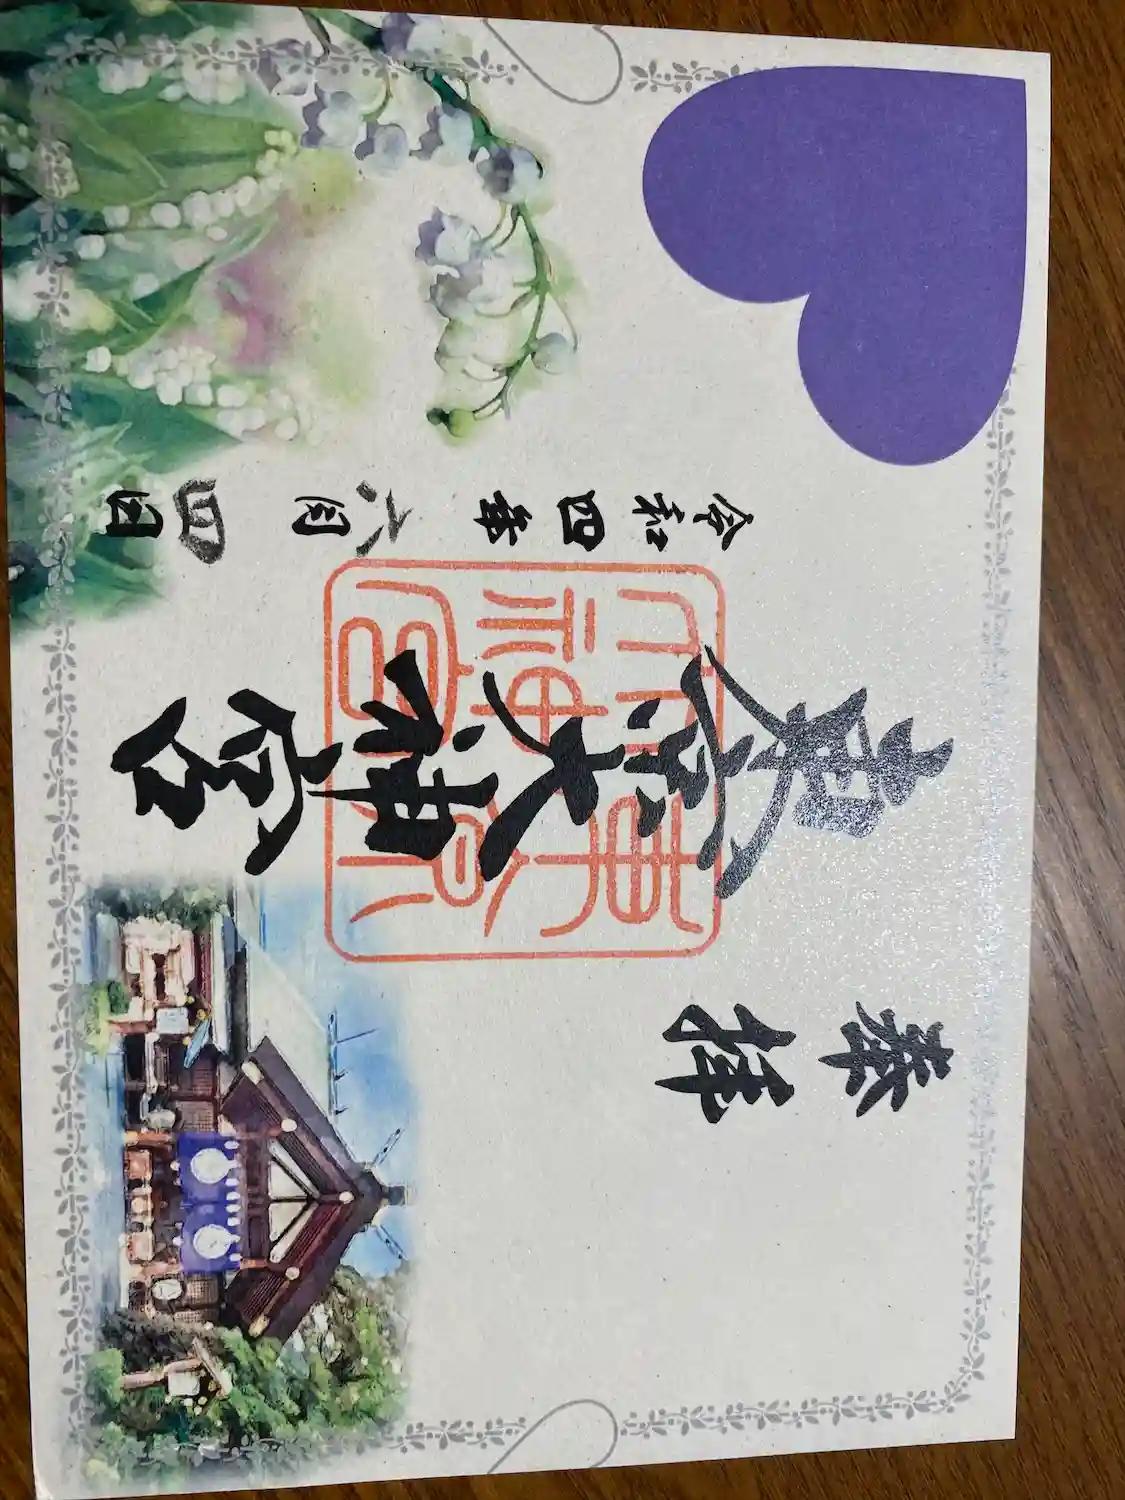 奉拝
東京大神宮
東京
大神宮
令和四年六月四日